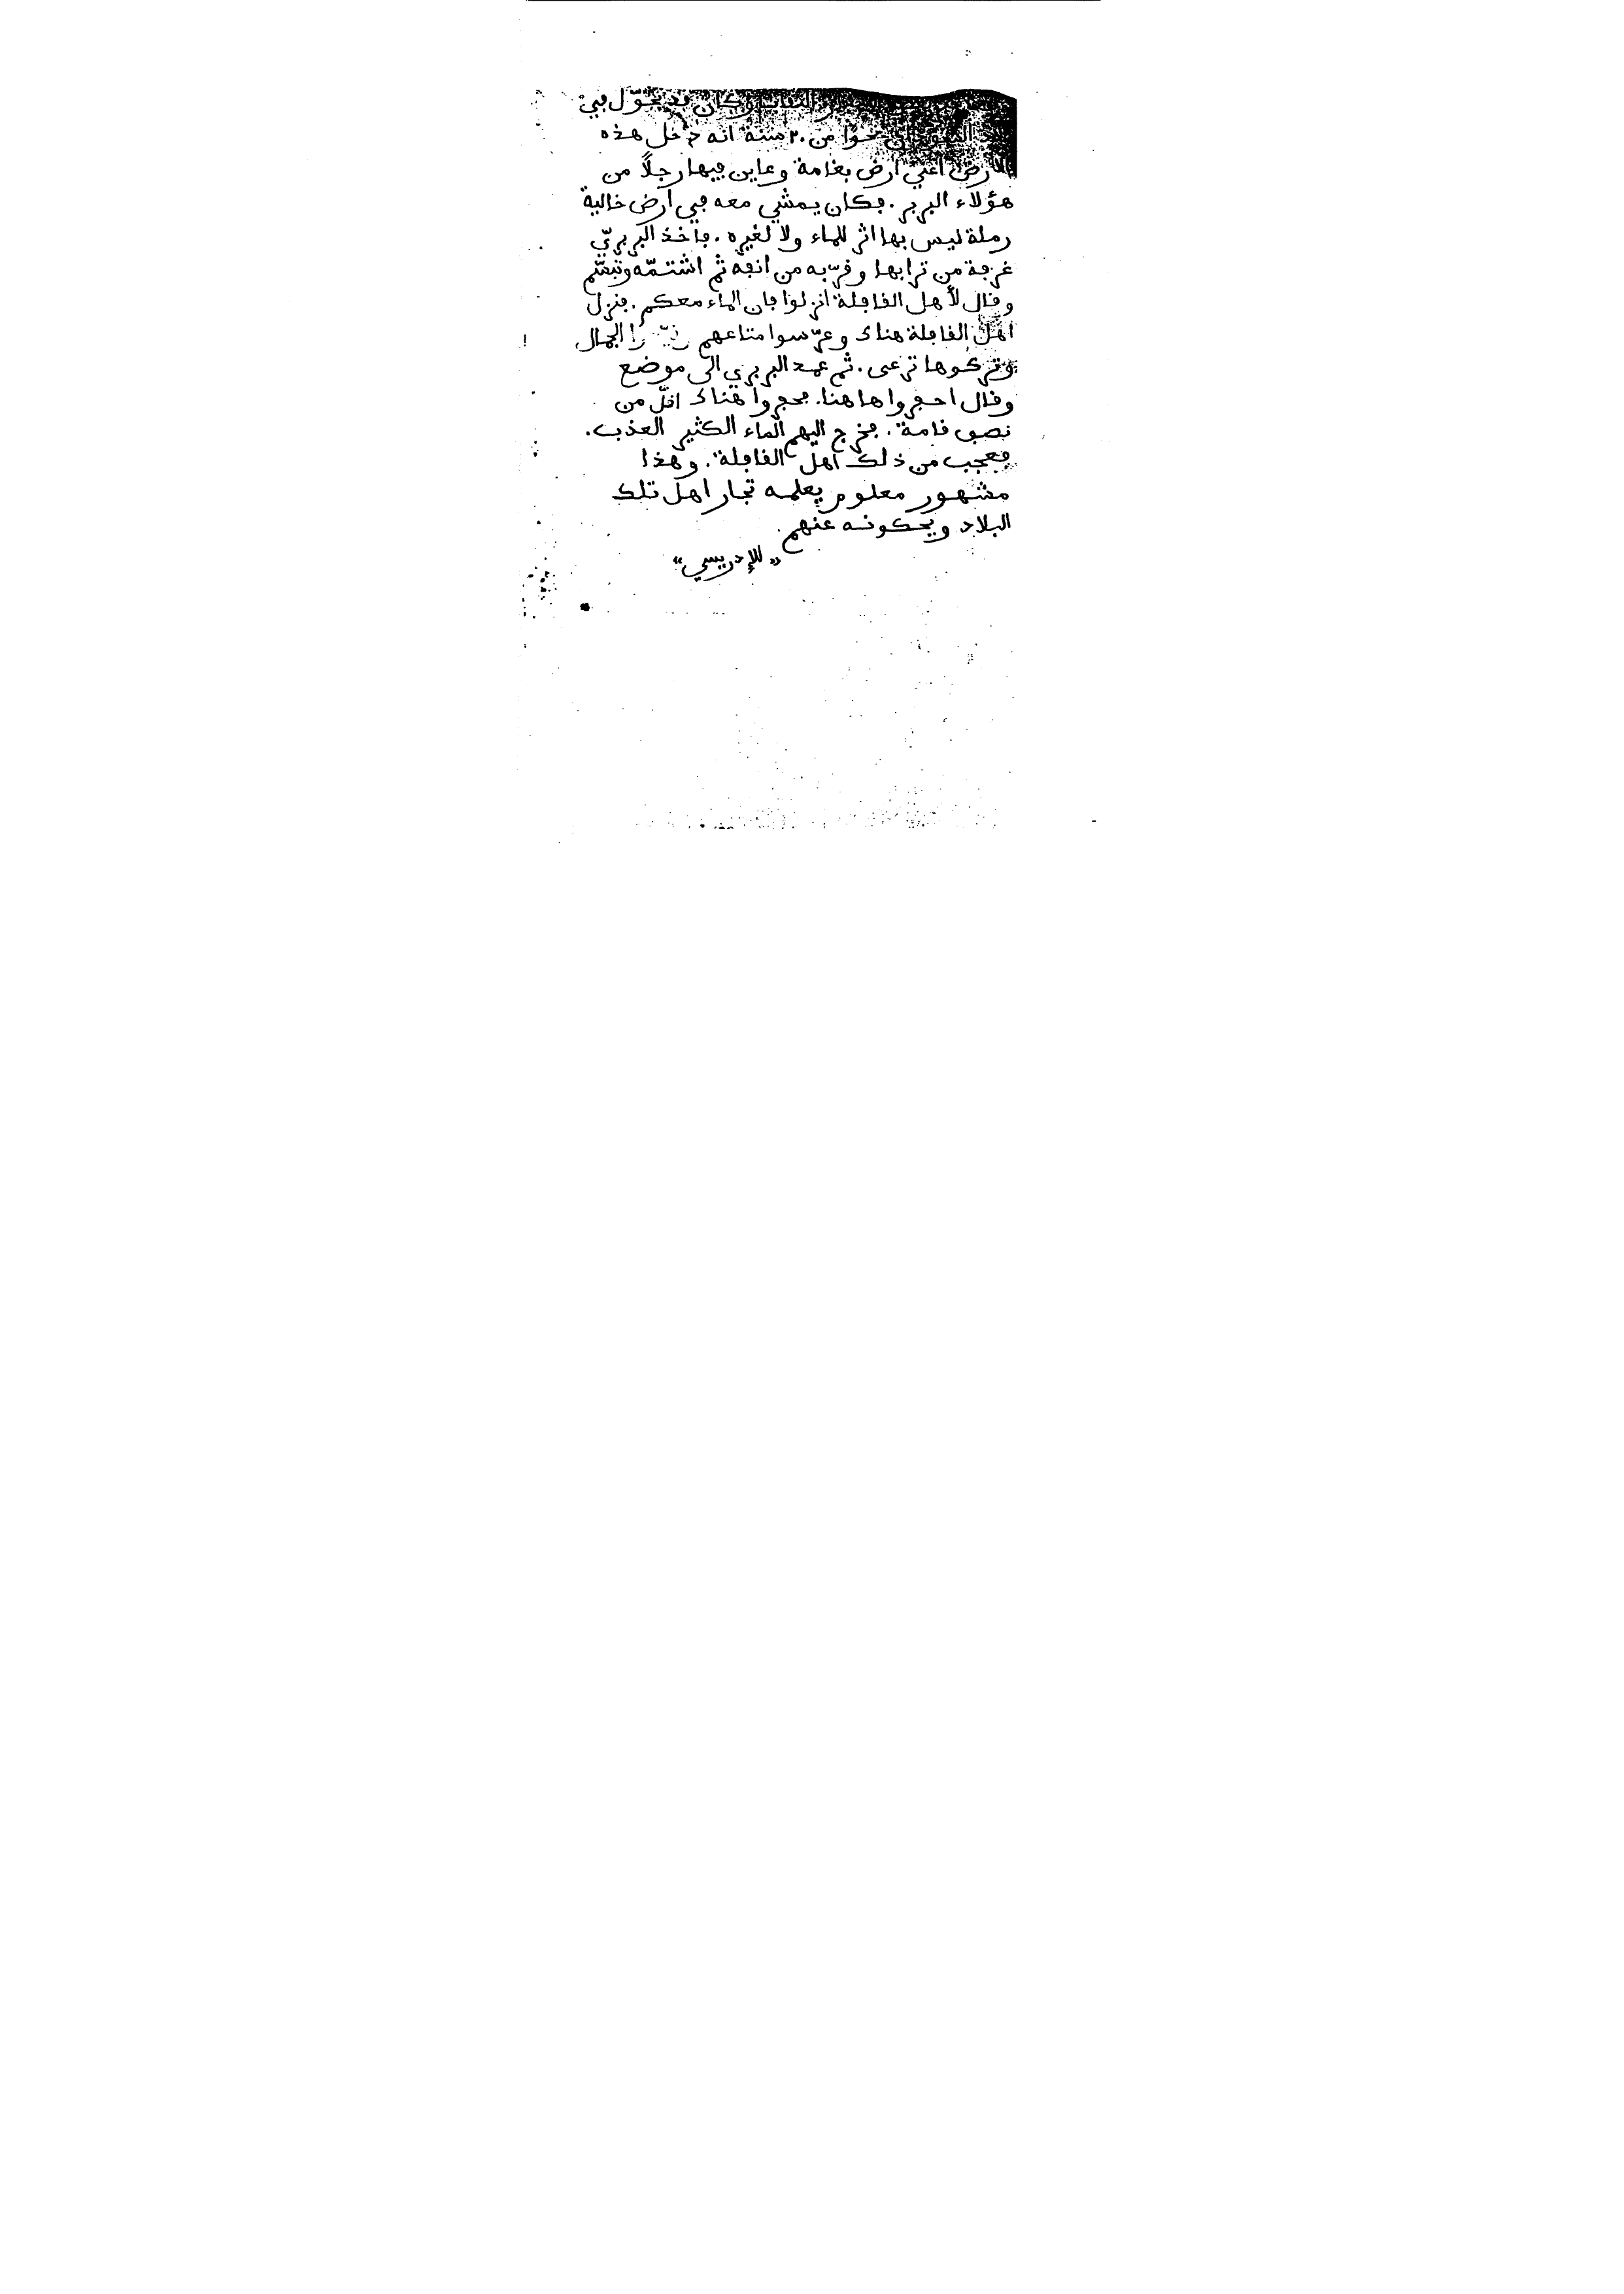 وكان قد تجوّل في
السودان نحوًا من ٢٠ سنة انه دخل هذه
الارض اعني ارض بغامة وعاين فيها رجلًا من
هؤلاء البربر. فكان يمشي معه في ارض خالية
رملة ليس بها اثر للماء ولا لغيره. فاخذ البربريّ
غرفة من ترابها وقرّبه من انفه ثم اشتمّه وتبسّم
وقال لأهل القافلة انزلوا فان الماء معكم. فنزل
اهل القافلة هناك وعرّسوا متاعهم الجمال
وتركوها ترعى. ثم عمد البربري الى موضع
وقال احفروا هاهنا. فحفروا هناك اقلّ من
نصف قامة. فخرج اليهم الماء الكثير العذب.
فعجب من ذلك اهل القافلة. وهذا
مشهور معلوم يعلمه تجار اهل تلك
البلاد ويحكونه عنهم.
"للإدريسي"